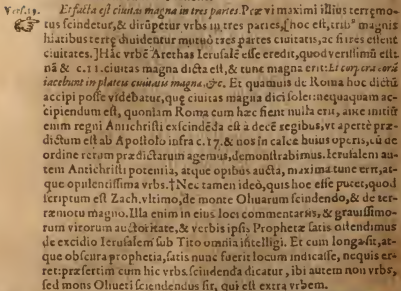 Vers.19. Et facta est ciuitas magna in tres partes. Præ vi maximi illius terręmo-
tus scindetur, & dirūpetur vrbs in tres partes, [hoc est, trib⁹ magnis
hiatibus terrę diuidentur mutuò tres partes ciuitatis, ac si tres essent
ciuitates.] Hāc vrbē Arethas Ierusalē esse credit, quod verissimū est:
nā & c.11. ciuitas magna dicta est, & tunc magna erit: Et corpora eorū
iacebunt in plateis ciuitatis magnæ, &c. Et quamuis de Roma hoc dictū
accipi posse videbatur, quę ciuitas magna dici solet: nequaquam ac-
cipiendum est, quoniam Roma cum hæc fient nulla erit, ante initiū
enim regni Antichristi exscindēda est à decē regibus, vt apertè præ-
dictum est ab Apostolo infra c.17. & nos in calce huius operis, cū de
ordine rerum prædictarum agemus, demonstrabimus. Ierusalem au-
tem Antichristi potentia, atque opibus aucta, maxima tunc erit, at-
que opulentissima vrbs. †Nec tamen ideò, quis hoc esse putet, quod
scriptum est Zach. vltimo, de monte Oliuarum scindendo, & de ter-
ræmotu magno. Illa enim in eius loci commentariis, & grauissimo-
rum virorum auctoritate, & verbis ipsis Prophetæ satis ostendimus
de excidio Ierusalem sub Tito omnia intelligi. Et cum longa sit, at-
que obscura prophetia, satis nunc fuerit locum indicasse, nequis er-
ret: præsertim cum hic vrbs scindenda dicatur, ibi autem non vrbs,
sed mons Oliueti sciendendus sit, qui est extra vrbem.